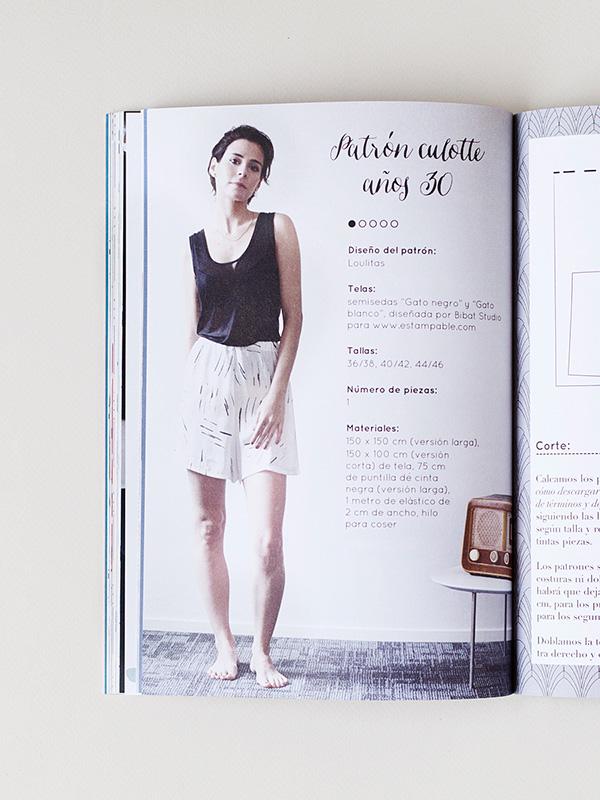 Patrón culotte
años 30
Diseño del patrón:
Loulitas
Telas:
semisedas "Gato negro" y "Gato
blanco", diseñada por Bibat Studio
para www.estampable.com
Tallas:
36/38, 40/42, 44/46
Número de piezas:
1
Materiales:
150 x 150 cm (versión larga),
150 x 100 cm (versión
corta) de tela, 75 cm
de puntilla de cinta
negra (versión larga),
1 metro de elástico de
2 cm de ancho, hilo
para coser
Corte:
Calcamos los
cómo descargar
de términos y
siguiendo las
según talla y
tintas piezas.
Los patrones
costuras ni
habrá que
cm, para los
para los
Doblamos la
tra derecho y